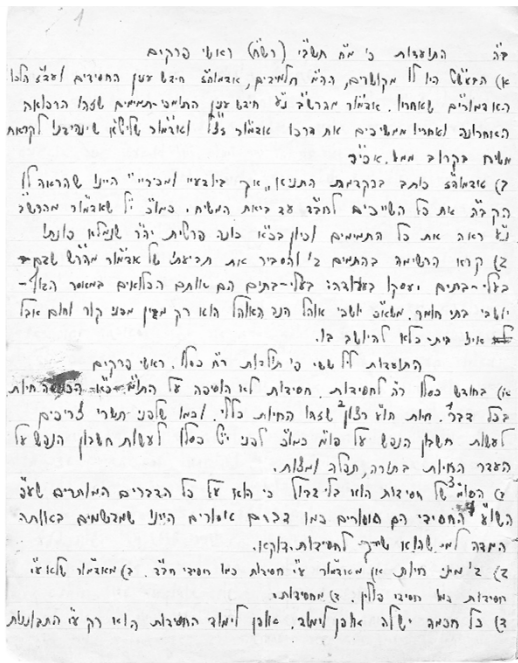 1
ב"ה התועדות כ' מ"ח תשב"י (רש"ח) ראשי פרקים
א) הבעש"ט היו לו מקושרים, הה"מ תלמידים, אדמוה"ז חידש ענין החסידים ועד"ז הלכו
האדמורי"ם שאחריו. אדמו"ר מהרש"ב נ"ע חידש ענין התומכי-תמימים שזהו הרפואה
האחרונה ואחריו ממשיכים את דרכו אדמו"ר זצ"ל ואדמו"ר שליט"א שינהיגנו לקראת
משיח בקרוב ממש. אכי"ר
ב) אדמוה"ז כותב בהקדמת התניא "אך ביודעיי ומכיריי" היינו שהראה לו
הקב"ה את כל השייכים לחב"ד עד ביאת המשיח. כמו"כ י"ל שאדמו"ר מהרש"ב
נ"ע ראה את כל התמימים וכיון בכ"א כונה פרטית יה"ר שנמלא כונתו
ג) קרא הרשימה בהתמים ב' והסביר את תביעתו של אדמו"ר מהר"ש
בעלי-בתים יעסקו בעבודה: בעלי-בתים הם אותם הכלואים במאסר הגוף -
יושבי בתי חומר. משא"כ יושבי אוהל הנה האוהל הוא רק מגין מפני קור וחום אבל
אינו בית כלא להיושב בו.
התועדות ליל ששי פ' תולדות ר"ח כסלו. ראשי פרקים
א) בחודש כסלו ר"ה לחסידות. חסידות לא הוסיפה על התי"מ חיות
בכל דבר. חיות הו"ע רצון שזהו החיות כללי. וכמו שלפני תשרי צריכים
לעשות חשבון הנפש על תו"מ כמו"כ לפני י"ט כסלו לעשות חשבון הנפש על
העדר החיות בתורה, תפלה ומצות.
ב) הסו"מ של חסידות הוא בלי גבול כי הוא על כל הדברים המותרים שע"פ
השו"ע החסידי הם אסורים כמו דברים אסורים היינו שמרגישים באותה
המדה למי שהוא שייך לחסידות דוקא.
ג) ב' מיני חיות א) מאדמו"ר ע"י חסידות כמו חסידי חב"ד. ב) מאדמו"ר שלא ע"י
חסידות כמו חסידי פולין. ג) מחסידות.
ד) כל חכמה ישלה אופן לימוד. אופן לימוד החסידות הוא רק ע"י התבוננות